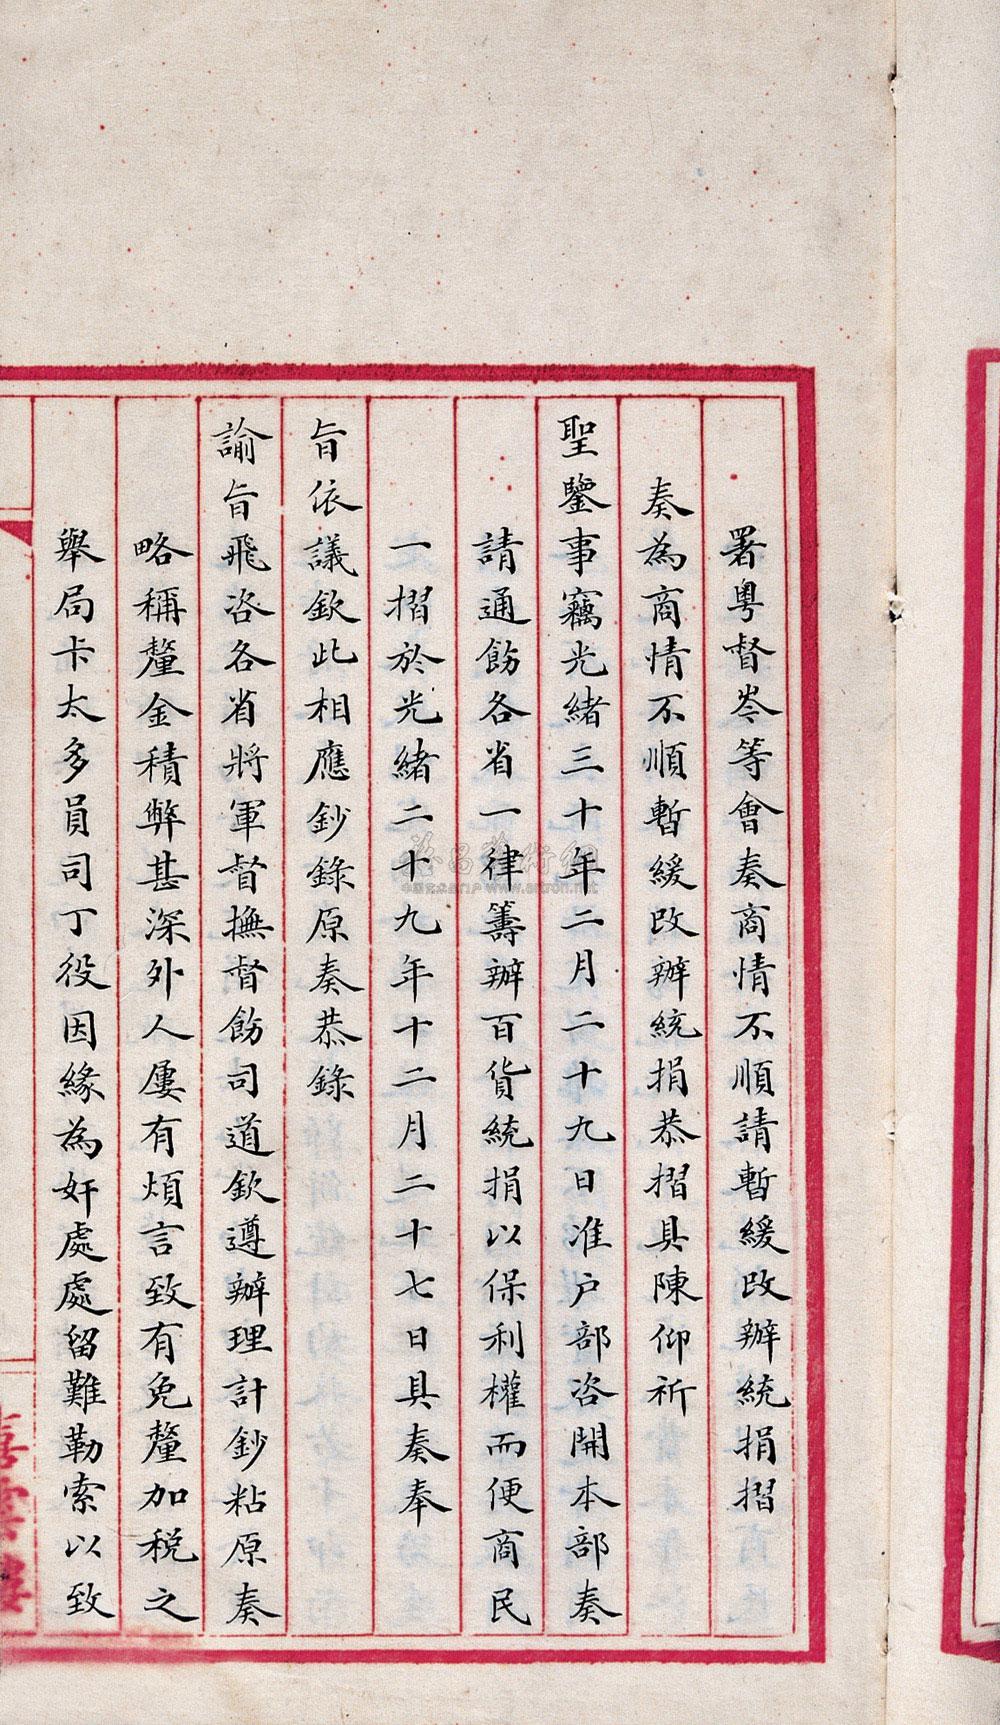 署粵督岑等會奏商情不順請暫緩改辦統捐摺
奏為商情不順暫緩改辦統捐恭摺具陳仰祈
聖鑒事竊光緒三十年二月二十九日准户部咨開本部奏
請通飭各省一律籌辦百貨統捐以保利權而便商民
一摺於光緒二十九年十二月二十七日具奏奉
旨依議欽此相應鈔錄原奏恭錄
諭旨飛咨各省將軍督撫督飭司道欽遵辦理計鈔粘原奏
略稱釐金積弊甚深外人屢有煩言致有免釐加稅之
舉局卡太多員司丁役因緣為奸處處留難勒索以致
www.artron.net